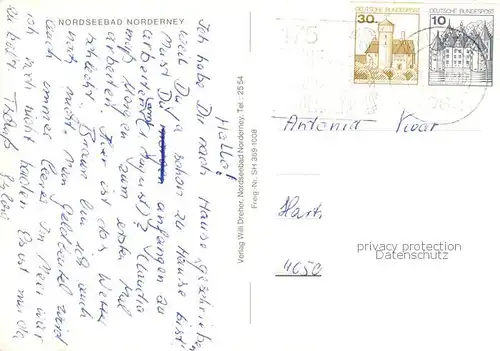 NORDSEEBAD NORDERNEY
Hallo!
Ich habe Dir nach Hause geschrieben
weil Du ja schon zu Hause bist
Mußt Du anfangen zu
arbeiten (August)? Claudia
muß Morgen zum ersten Mal
arbeiten. Hier ist das Wetter
schlecht. Braun bin ich auch
noch nicht. Mein Geldbeutel wird
auch immer leerer. Im Meer war
ich noch nicht baden. Es ist mir da
zu kalt. Tschüß
Verlag Willi Dreher, Nordseebad Norderney, Tel.: 25 54
Freig.-Nr. SH 369-1008
30 DEUTSCHE BUNDESPOST
10 DEUTSCHE BUNDESPOST
Antonia
Hart
4650
privacy protection
Datenschutz